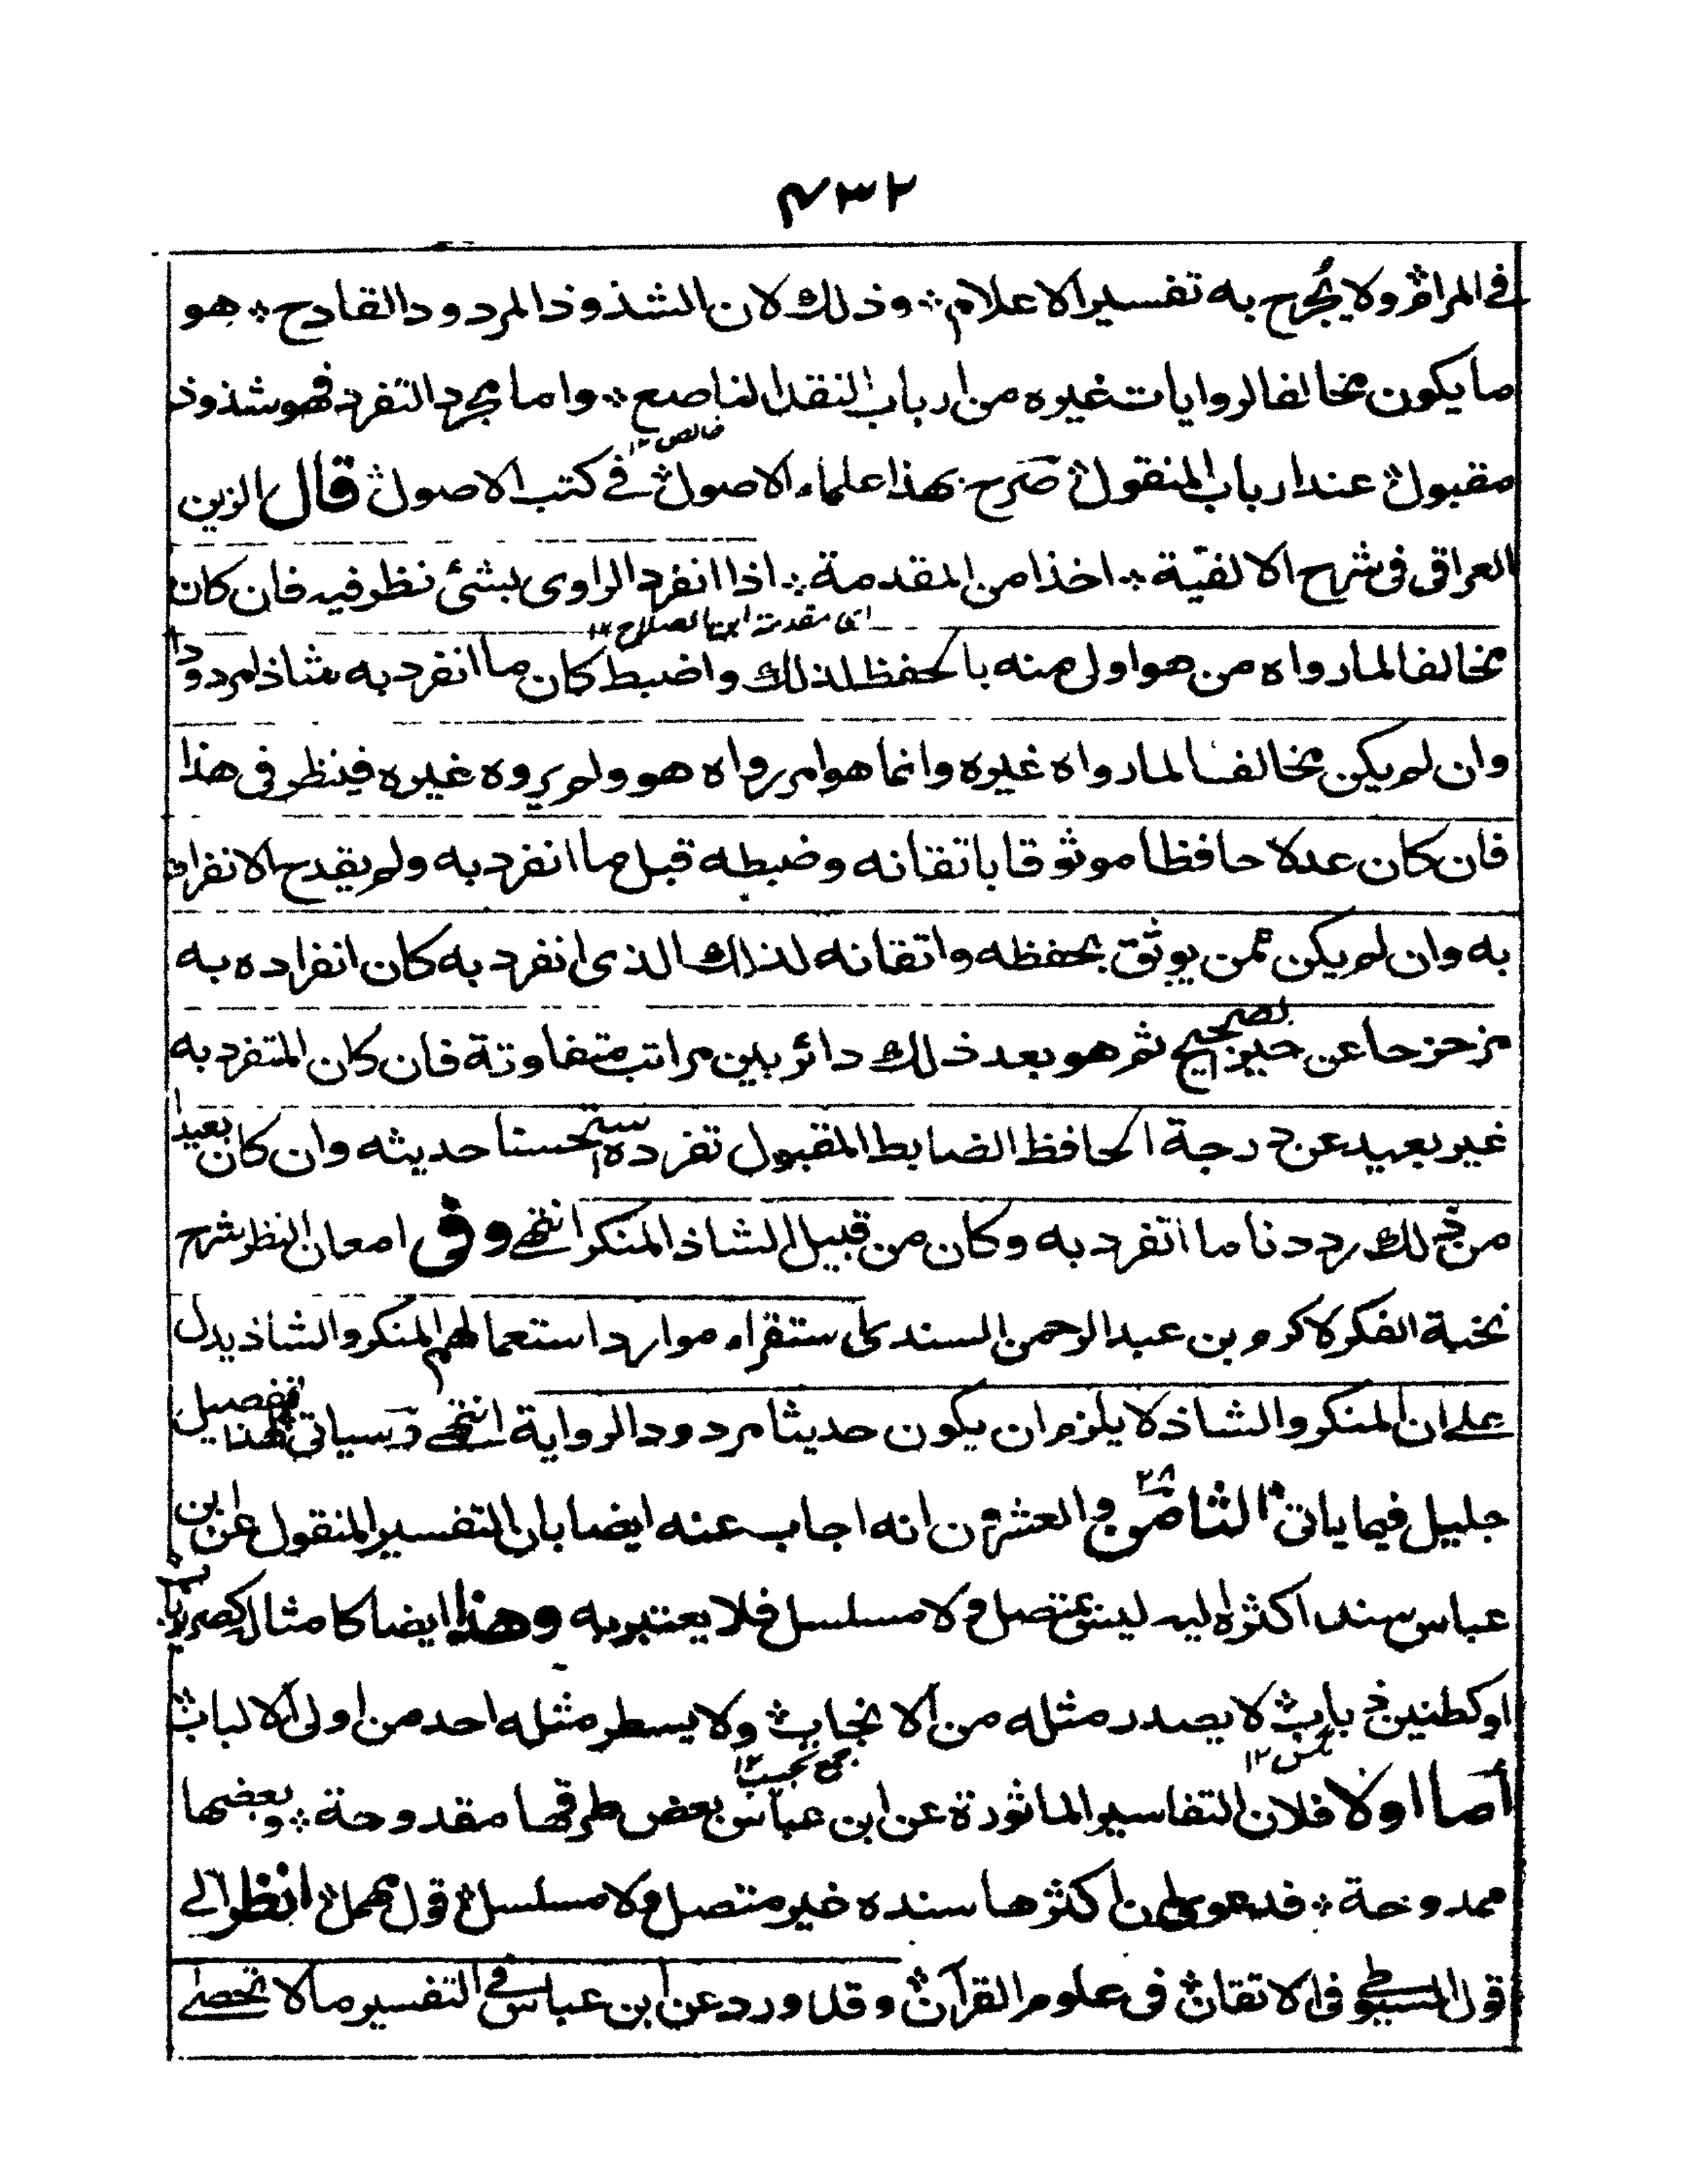 ٤٣٢
في المرام ولا يجرح به تفسير الاعلام ؞ وذلك لان الشذوذ المردود القادح ؞ هو
ما يكون مخالفا لروايات غيره من ارباب النقد الناصع ؞ واما مجرد التفرد فهو شذوذ
خالص ١٢
مقبول ؞ عند ارباب المنقول ؞ صرح بهذا علماء الاصول ؞ في كتب الاصول ؞ قال الزين
العراقى فى شرح الالفيّة ؞ اخذا من المقدمة ؞ اذا انفرد الراوى بشئ نظر فيه فان كان
اى مقدمة ابن الصلاح ١٢
مخالفا لما رواه من هو اولى منه بالحفظ لذلك واضبط كان ما انفرد به شاذا مردودا
وان لم يكن مخالفا لما رواه غيره وانما هو امر رواه هو ولم يروه غيره فينظر فى هذا
فان كان عدلا حافظا موثوقا باتقانه وضبطه قبل ما انفرد به ولم يقدح الانفراد
به وان لم يكن ممن يوثق بحفظه واتقانه لذلك الذى انفرد به كان انفراده به
مزحزحا عن حيز الصحيح ثم هو بعد ذلك دائر بين مراتب متفاوتة فان كان المتفرد به
غير بعيد عن درجة الحافظ الضابط المقبول تفرده استحسنا حديثه وان كان بعيدا
من ذلك رددنا ما اتفرد به وكان من قبيل الشاذ المنكر انتهى وفى امعان النظر شرح
نخبة الفكر لاكرم بن عبد الرحمن السندى استقراء موارد استعمالهم المنكر والشاذ يدل
على ان المنكر والشاذ لا يلزم ان يكون حديثا مردود الرواية انتهى وسياتى لهذا تفصيل
جليل فيما ياتى ؞ الثامن والعشرون ٢٨ انه اجاب عنه ايضا بان التفسير المنقول عن ابن
عباس سند اكثره اليه ليس بمتصل ولا مسلسل فلا يعتبر به وهذا ايضا كامثاله كصرير باب
او كطنين ذباب ؞ لا يصدر مثله من الانجاب ؞ ولا يسطر مثله احد من اولى الالباب ؞
مگس ١٢
جمع نجيب ١٢
أما اولا فلان التفاسير الماثورة عن ابن عباس بعض طرقها مقدوحة ؞ وبعضها
ممدوحة ؞ فدعوى ان اكثرها سنده غير متصل ولا مسلسل ؞ قول مهمل ؞ انظر الى
قول السيوطى فى الاتقان ؞ فى علوم القرآن ؞ وقد ورد عن ابن عباس في التفسير ما لا تحصى